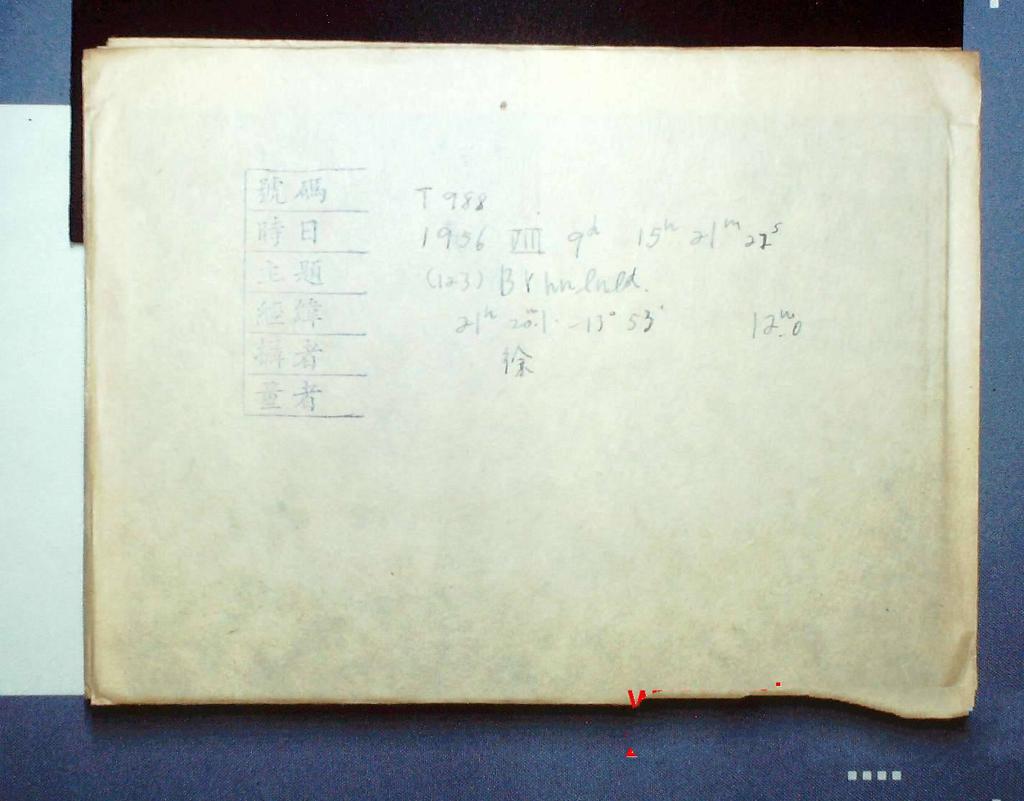 號碼 T 988
時日 1956 VIII 9d 15h 21m 27s
主題 (123) Brunhild.
經緯 21h 20m.1 -13° 53' 12m.0
攝者 徐
量者